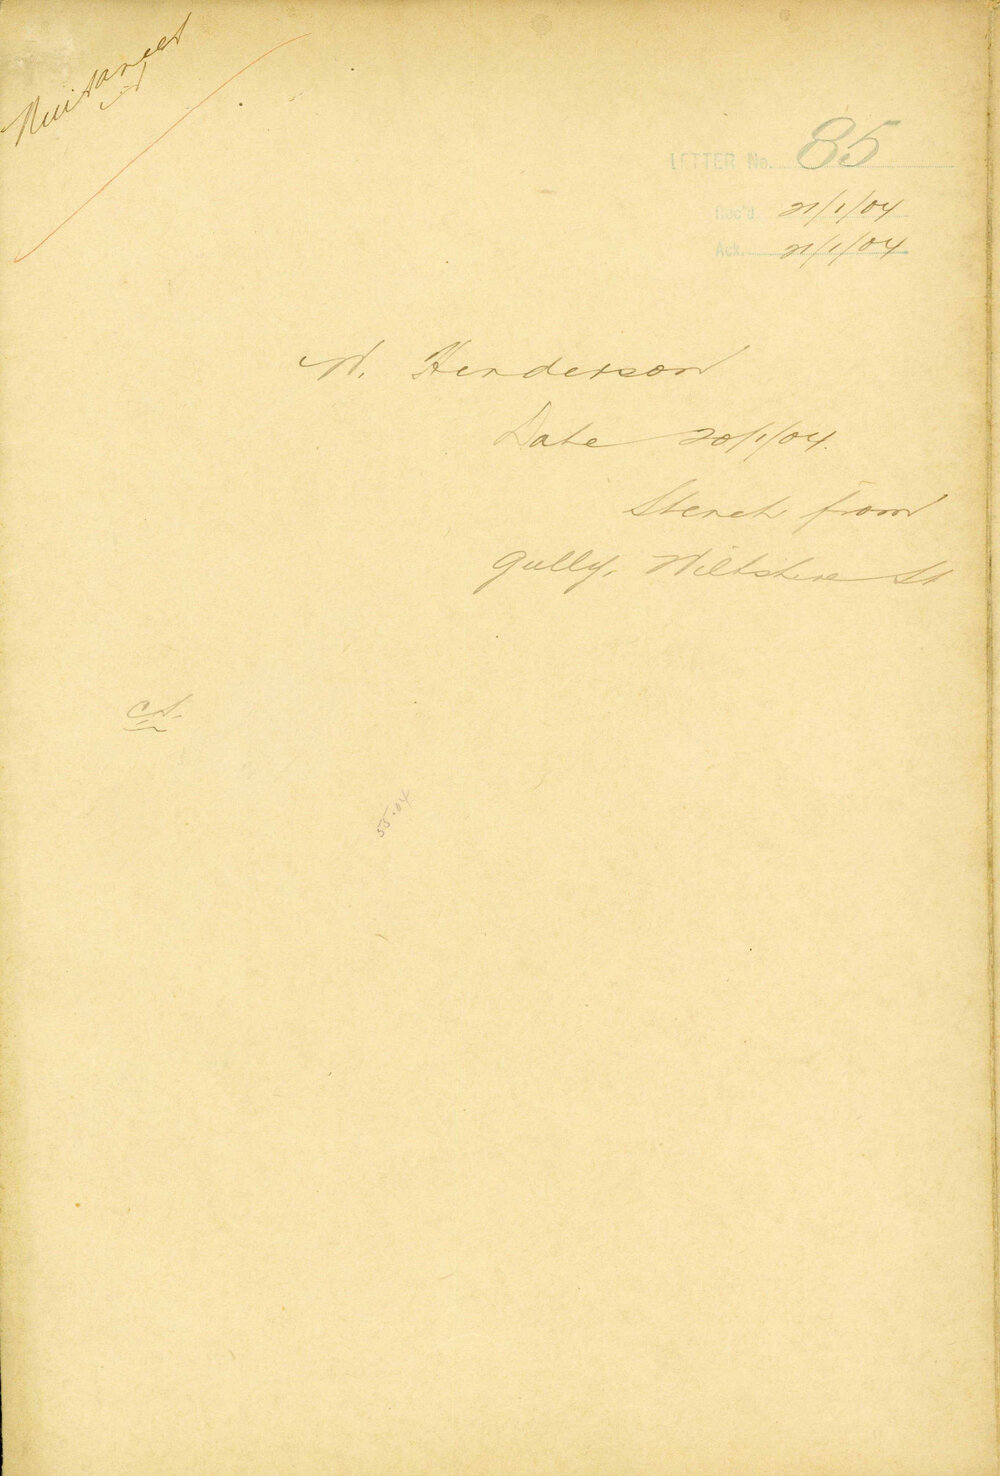 Nuisances
LETTER No. 85
Rec'd 21/1/04
Ack. 21/1/04
W. Henderson
Date 20/1/04.
Stench from
gully, Wiltshire St
55.04